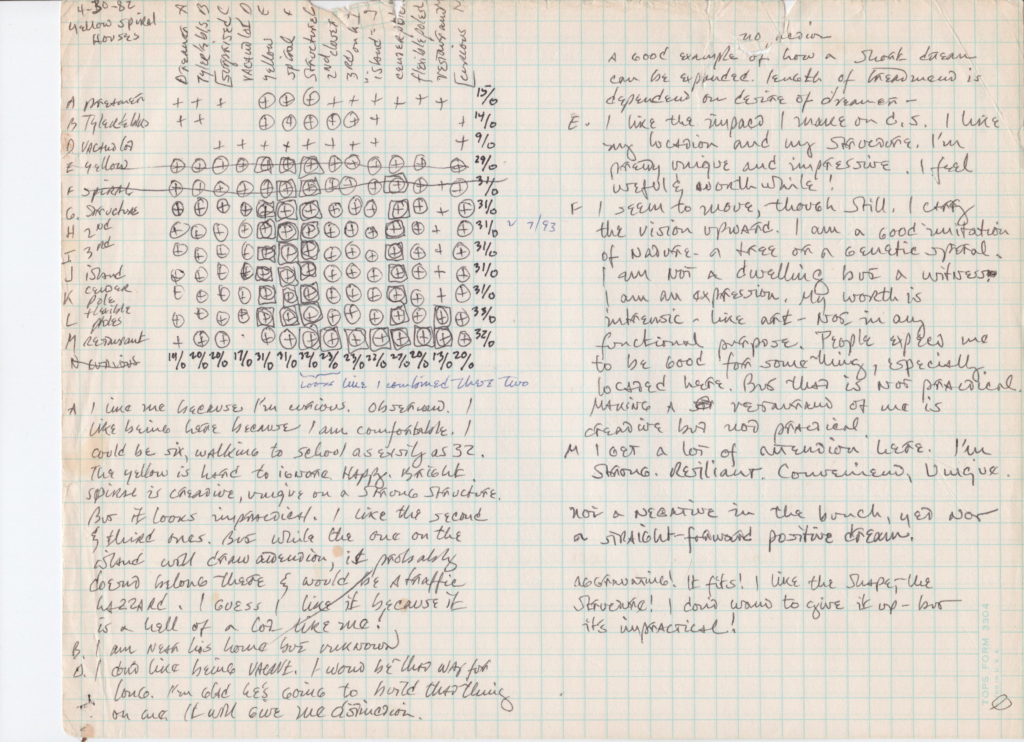 4-30-82
Yellow Spiral
Houses
Dreamer A
Tyler & blvd. B
surprised C
vacant lot D
yellow E
spiral F
structure G
2nd closer H
3rd on I
" island J
center pole K
flexible poles L
restaurant M
curious N
A Dreamer + + + ⊕ ⊕ ⊕ + + + + + + 15/0
B Tyler & blvd + + ⊕ ⊕ ⊕ ⊕ ⊕ + + 14/0
D vacant lot + + + + + + + + + 9/0
E yellow 29/0
F spiral 31/0
G. Structure 31/0
H 2nd 31/0 ✓ 7/93
I 3rd 31/0
J island 31/0
K center pole 31/0
L flexible poles 33/0
M restaurant 32/0
N curious 19/0 20/0 20/0 17/0 31/0 31/0 22/0 23/0 23/0 22/0 27/0 20/0 13/0 20/0
looks like I combined these two
A I like me because I'm curious. Observant. I
like being here because I am comfortable. I
could be six, walking to school as easily as 32.
The yellow is hard to ignore. Happy. Bright
spiral is creative, unique on a strong structure.
But it looks impractical. I like the second
& third ones. But while the one on the
island will draw attention, it probably
doesn't belong there & would be a traffic
hazzard. I guess I like it because it
is a hell of a lot like me!
B. I am near his home but unknown
D. I don't like being vacant. I won't be that way for
long. I'm glad he's going to build that thing
on me. It will give me distinction.
no action
A good example of how a short dream
can be expanded. Length of treatment is
dependent on desire of dreamer –
E. I like the impact I make on C.S. I like
my location and my structure. I'm
pretty unique and impressive. I feel
useful & worthwhile!
F I seem to move, though still. I carry
the vision upward. I am a good imitation
of nature – a tree or a genetic spiral.
I am not a dwelling but a witness
I am an expression. My worth is
intrensic – like art – not in any
functional purpose. People expect me
to be good for something, especially
located here. But that is not practical.
Making a restaurant of me is
creative but not practical.
M I get a lot of attention here. I'm
strong. Resiliant. Convenient, Unique.
not a negative in the bunch, yet not
a straight-forward positive dream.
Aggravating! It fits! I like the shape, the
structure! I don't want to give it up – but
it's impractical!
TOPS FORM 3304